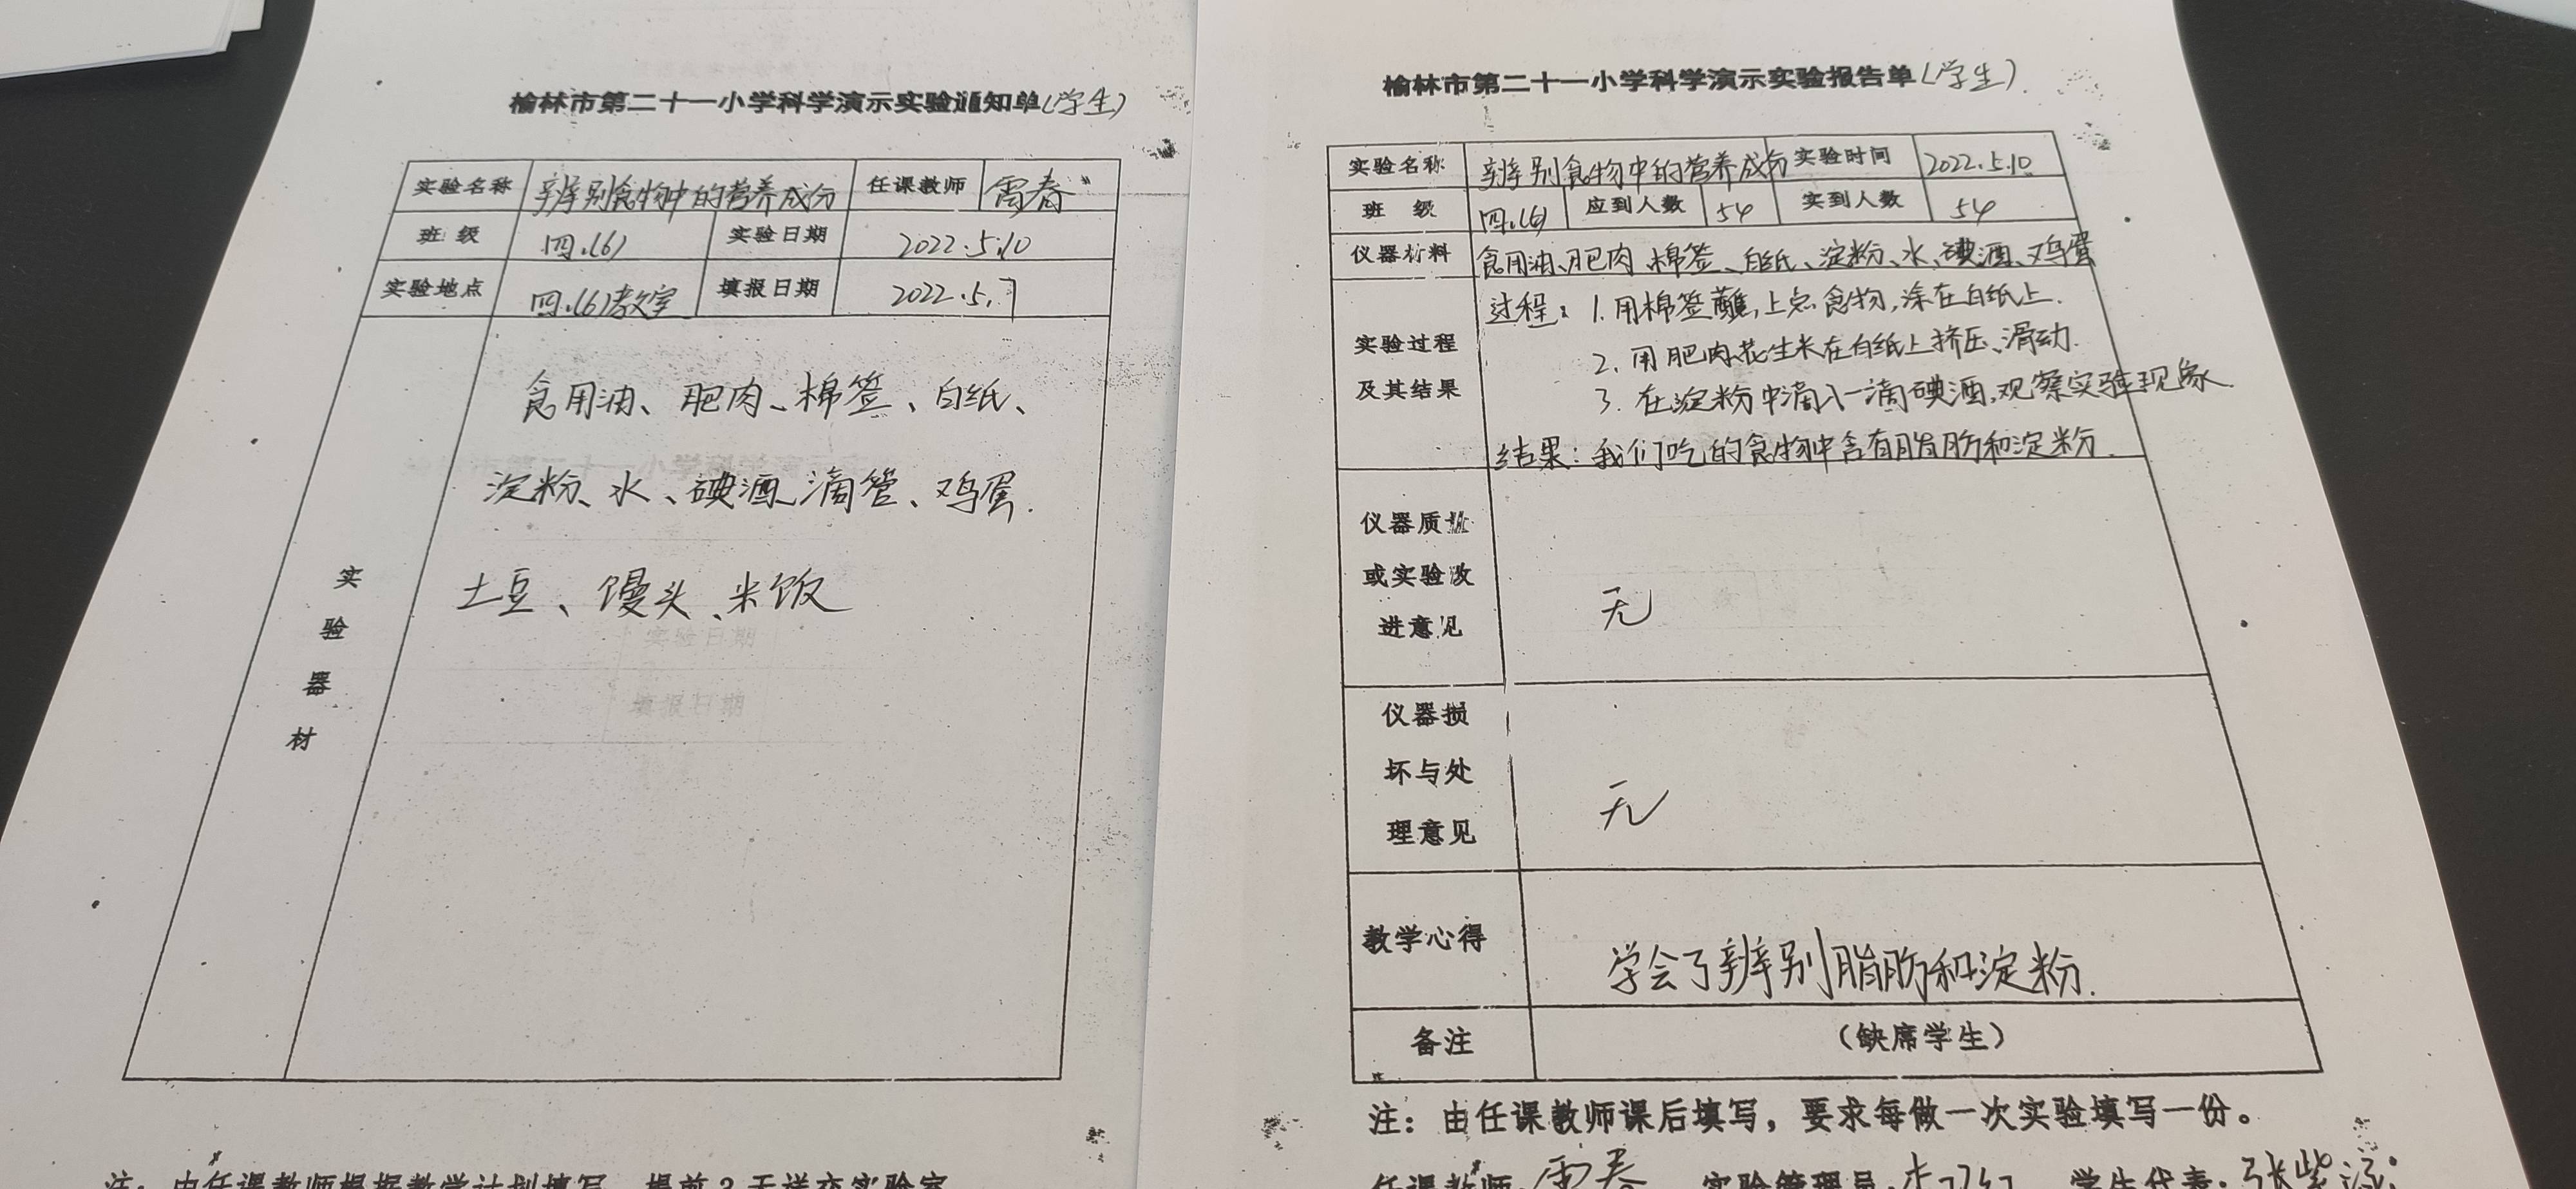 榆林市第二十一小学科学演示实验通知单(学生)
实验名称 辨别食物中的营养成份 任课教师 雷春
班 级 四.(6) 实验日期 2022.5.10
实验地点 四.(6)教室 填报日期 2022.5.7
实验器材
食用油、肥肉、棉签、白纸、
淀粉、水、碘酒、滴管、鸡蛋.
土豆、馒头、米饭
实验日期
填报日期
注：由任课教师根据教学计划填写，提前3天送交实验室
榆林市第二十一小学科学演示实验报告单(学生)
实验名称 辨别食物中的营养成份 实验时间 2022.5.10
班 级 四.(6) 应到人数 54 实到人数 54
仪器材料 食用油、肥肉、棉签、白纸、淀粉、水、碘酒、鸡蛋
实验过程及其结果
过程：1.用棉签蘸,上点食物,涂在白纸上.
2.用肥肉、花生米在白纸上挤压、滑动.
3.在淀粉中滴入一滴碘酒,观察实验现象.
结果：我们吃的食物中含有脂肪和淀粉.
仪器质量或实验改进意见 无
仪器损坏与处理意见 无
教学心得 学会了辨别脂肪和淀粉.
备注 (缺席学生)
注：由任课教师课后填写，要求每做一次实验填写一份。
任课教师：雷春 实验管理员： 学生代表：张紫